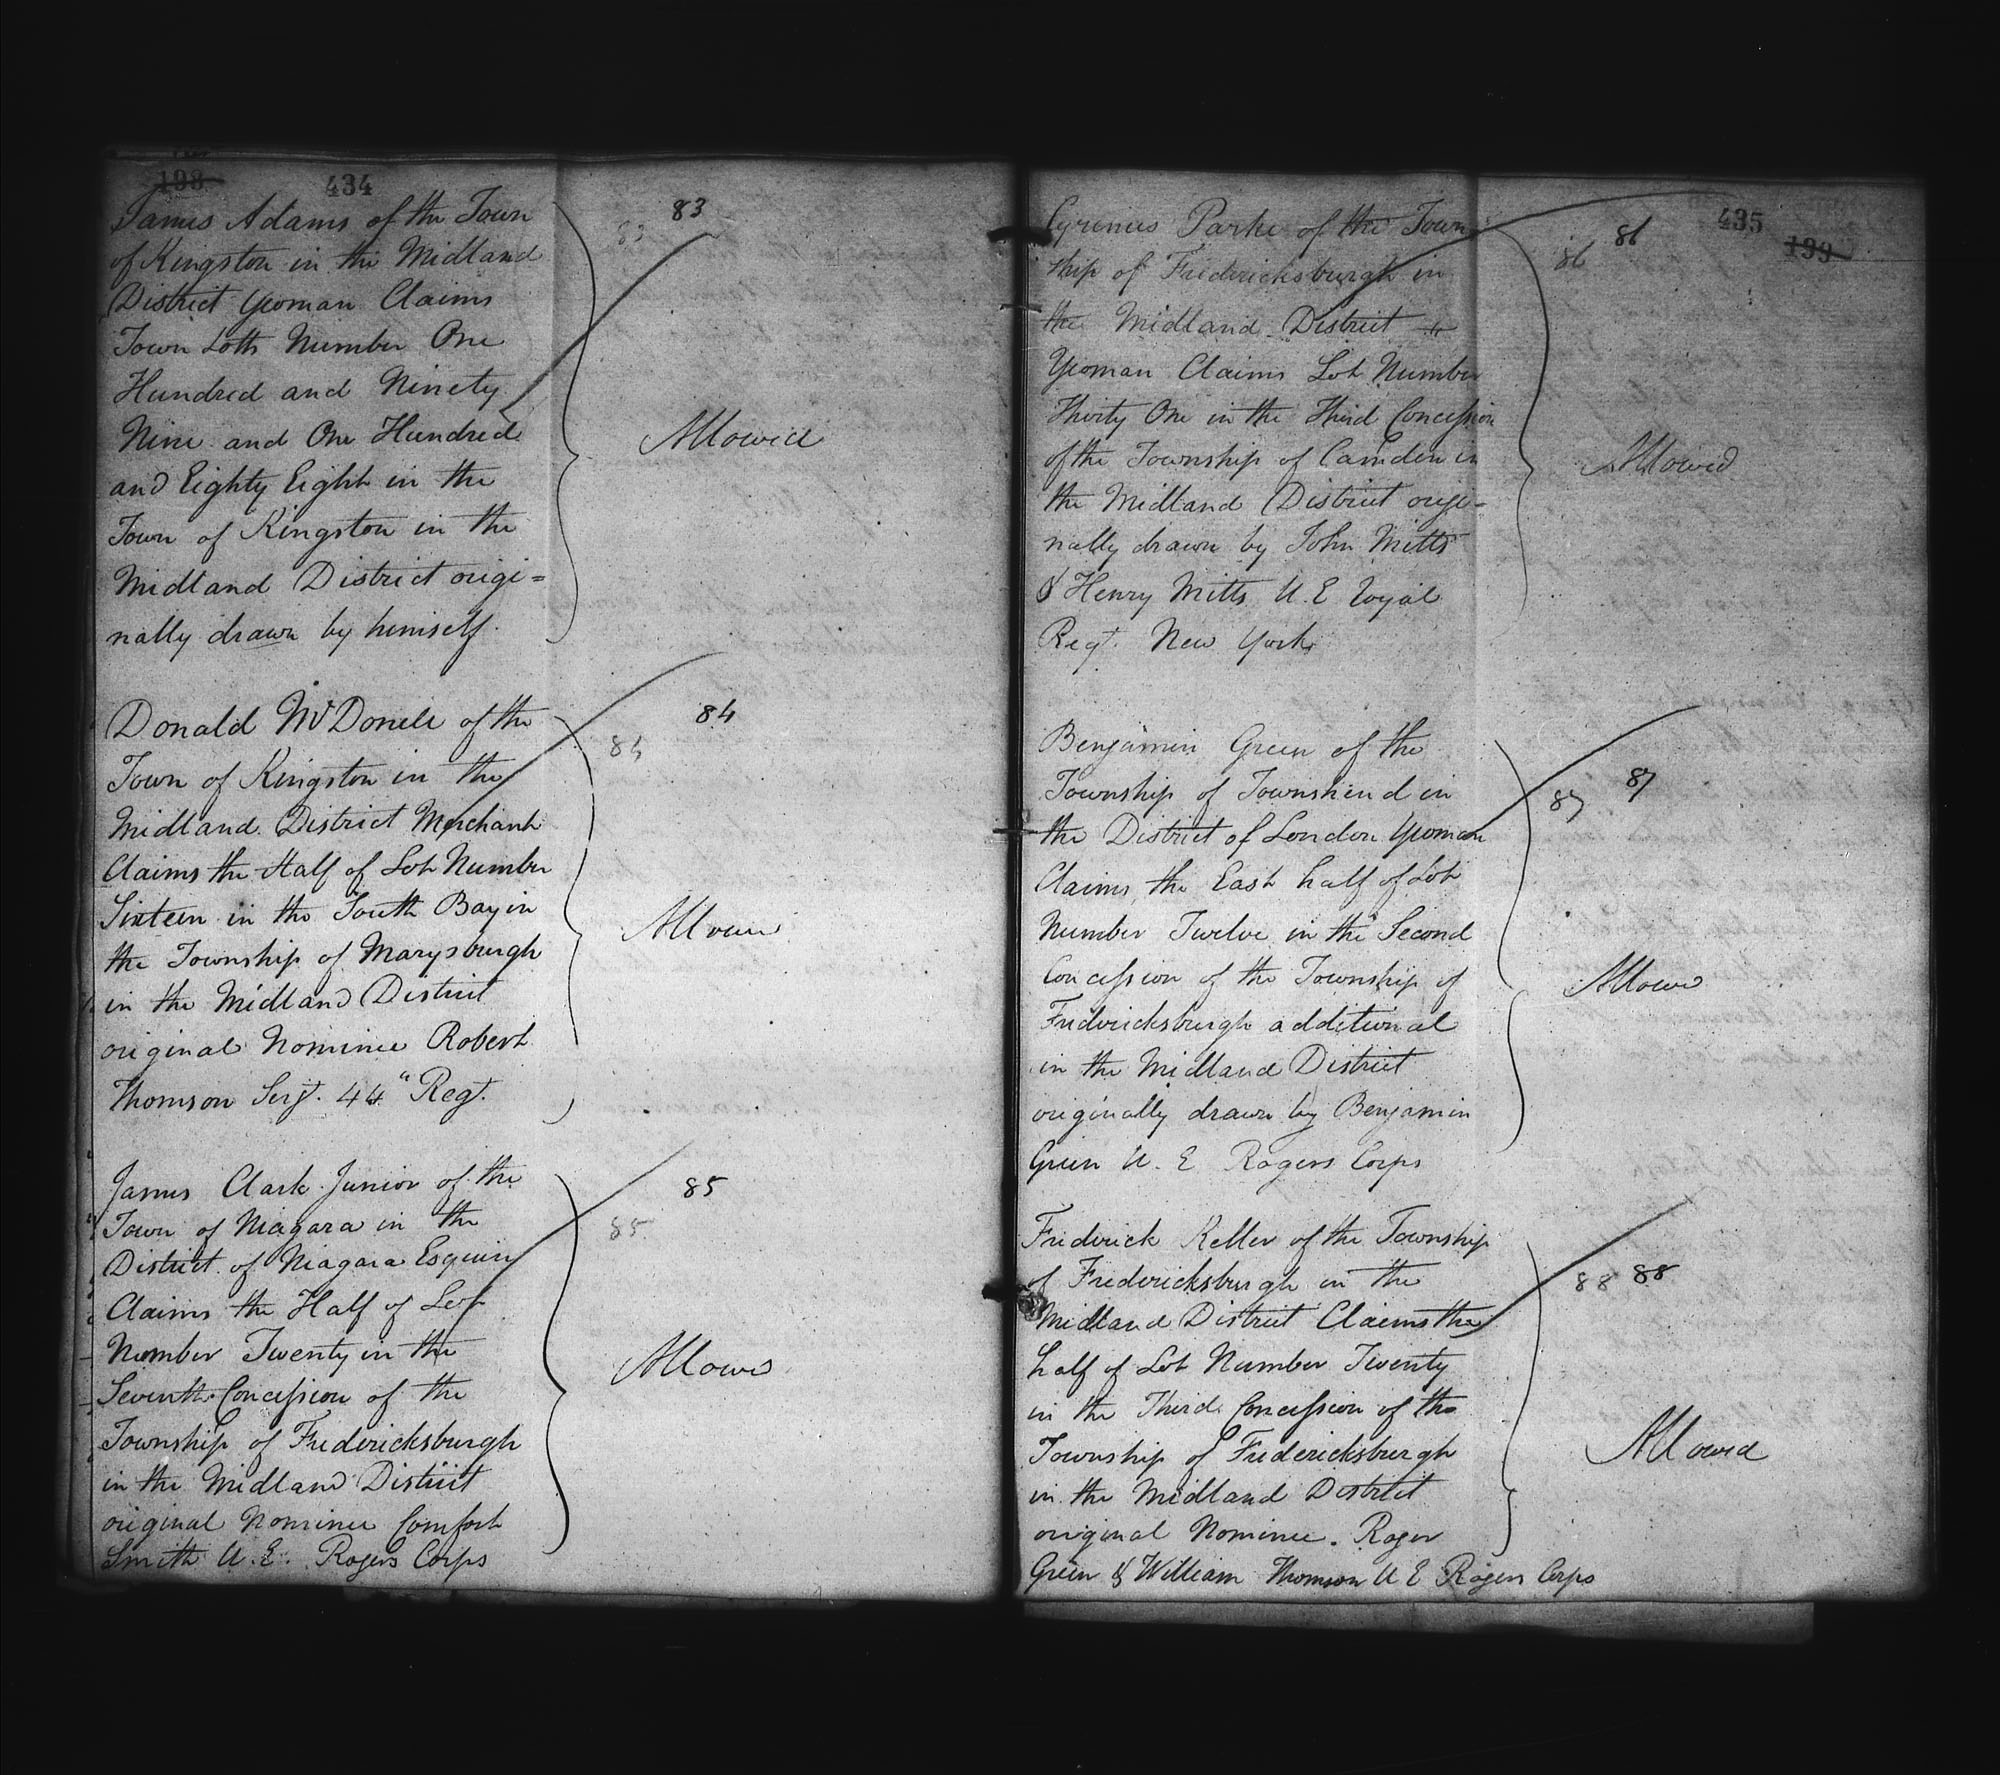 198 434
James Adams of the Town
of Kingston in the Midland
District Yeoman Claims
Town Lotts Number One
Hundred and Ninety
Nine and One Hundred
and Eighty Eight in the
Town of Kingston in the
Midland District origi=
nally drawn by himself.
83
83
Allowed
Donald McDonell of the
Town of Kingston in the
Midland District Merchant
Claims the Half of Lot Number
Sixteen in the South Bay in
the Township of Marysburgh
in the Midland District
original Nominee Robert
Thomson Serjt. 44" Regt.
84
84
Allowed
James Clark Junior of the
Town of Niagara in the
District of Niagara Esquire
Claims the Half of Lot
Number Twenty in the
Seventh Concession of the
Township of Fredericksburgh
in the Midland District
original Nominee Comfort
Smith U.E. Rogers Corps
85
85
Allowed
435
199
Cyrenus Parke of the Town
ship of Fredericksburgh in
the Midland District
Yeoman Claims Lot Number
Thirty One in the Third Concession
of the Township of Camden in
the Midland District origi-
nally drawn by John Mitts
& Henry Mitts U.E Royal
Regt. New York
86
86
Allowed
Benjamin Green of the
Township of Townshend in
the District of London Yeoman
Claims the East half of Lot
Number Twelve in the Second
Concession of the Township of
Fredericksburgh additional
in the Midland District
originally drawn by Benjamin
Green U. E Rogers Corps
87
87
Allowed
Frederick Keller of the Township
of Fredericksburgh in the
Midland District Claims the
half of Lot Number Twenty
in the Third Concession of the
Township of Fredericksburgh
in the Midland District
original Nominee. Roger
Green & William Thomson U E Rogers Corps
88 88
Allowed